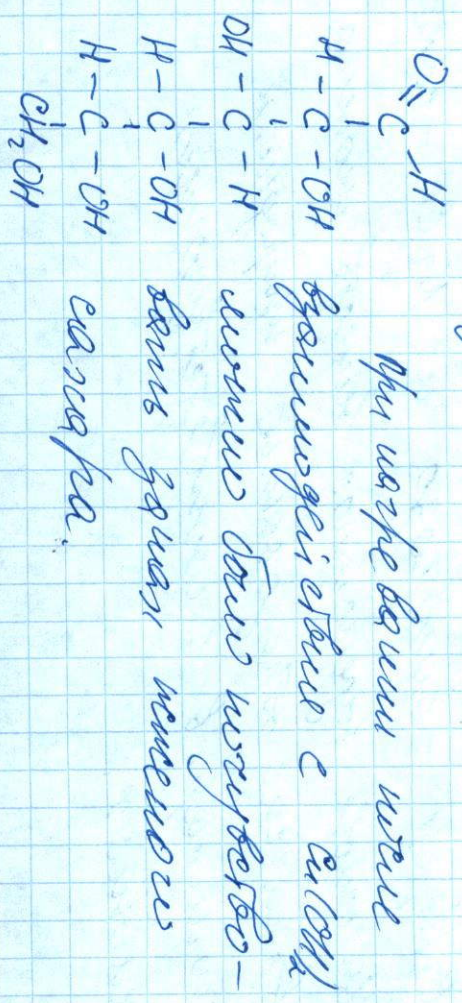 O=C-H
H-C-OH
OH-C-H
H-C-OH
H-C-OH
CH₂OH
При нагревании
взаимодействие с Cu(OH)₂
можно было почувство-
вать запах жженого
сахара.